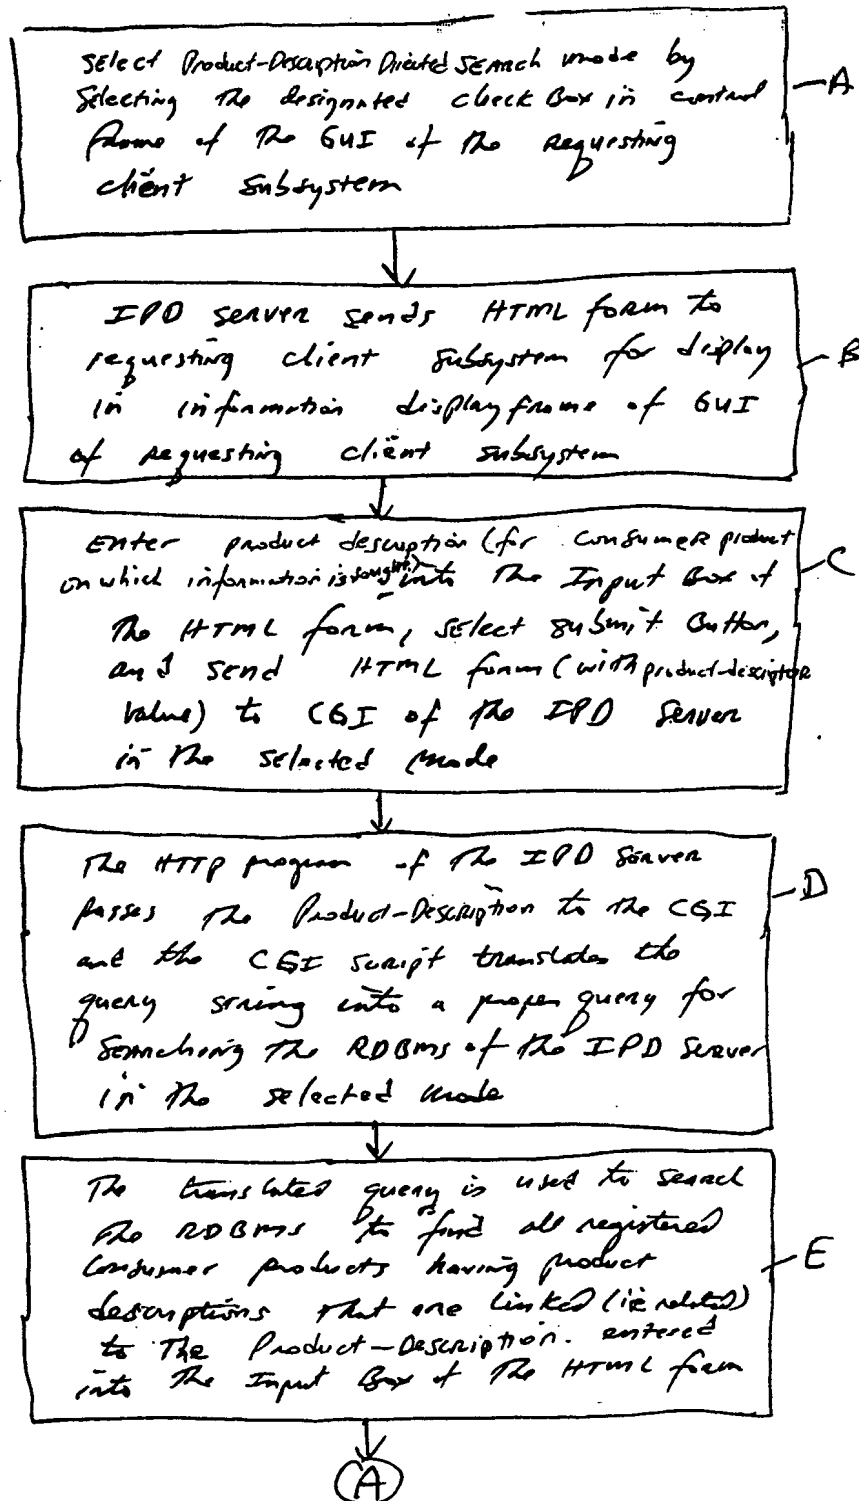 Select Product-Description Directed Search mode by
selecting the designated check Box in control
frame of the GUI of the requesting
client subsystem
A
IPD Server sends HTML form to
requesting client subsystem for display
in information display frame of GUI
of requesting client subsystem
B
Enter product description (for consumer product
on which information is sought) into The Input Box of
The HTML form, select submit Button,
and send HTML form (with product-descriptor
value) to CGI of the IPD Server
in the selected mode
C
The HTTP program of the IPD Server
passes the Product-Description to the CGI
and the CGI script translates the
query string into a proper query for
searching the RDBMS of the IPD Server
in the selected mode
D
The translated query is used to search
the RDBMS to find all registered
consumer products having product
descriptions that are linked (ie related)
to The Product-Description. entered
into The Input Box of The HTML form
E
A